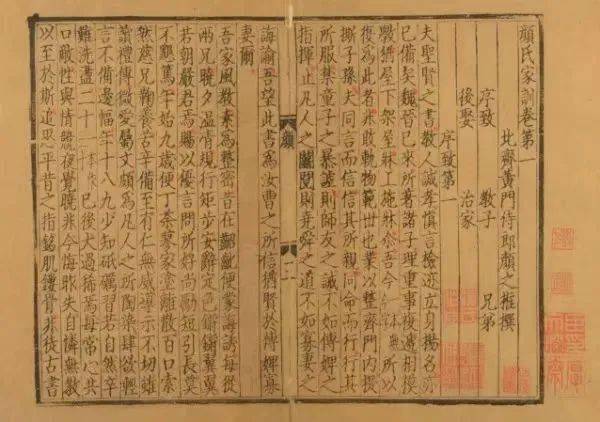 顔氏家訓卷第一
北齊黃門侍郎顔之推撰
序致 教子 兄弟
後娶 治家
序致第一
夫聖賢之書教人誠孝慎言檢迹立身揚名亦
已備矣魏晉已來所著諸子理重事複遞相模
斆猶屋下架屋牀上施牀爾吾今 本無 所以
復爲此者非敢軌物範世也業以整齊門內提
撕子孫夫同言而信信其所親同命而行行其
所服禁童子之暴謔則師友之誡不如傅婢之
指揮止凡人之鬭鬩則堯舜之道不如寡妻之
顔
一
誨諭吾望此書爲汝曹之所信猶賢於傅婢寡
妻爾
吾家風教素爲整密昔在齠齔便蒙誨誘每從
兩兄曉夕温凊規行矩步安辭定色鏘鏘翼翼
若朝嚴君焉賜以優言問所好尚勵短引長莫
不懇篤年始九歲便丁荼蓼家塗離散百口索
然慈兄鞠養苦辛備至有仁無威導示不切雖
讀禮傳微愛屬文頗爲凡人之所陶染肆欲輕
言不備邊幅年十八九少知砥礪習若自然卒
難洗盪二十 已後大過稀焉每常心共
口敵性與情競夜覺曉非今悔昨失自憐無教
以至於斯追思平昔之指銘肌鏤骨非徒古書